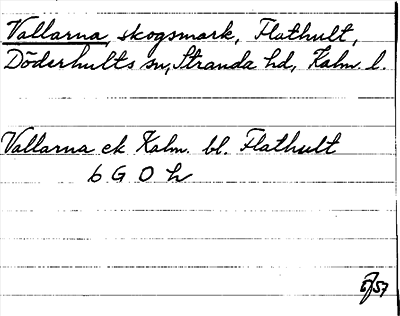 Vallarna, skogsmark, Flathult,
Döderhults sn, Stranda hd, Kalm. l.
Vallarna ek Kalm. bl. Flathult
6 G O h